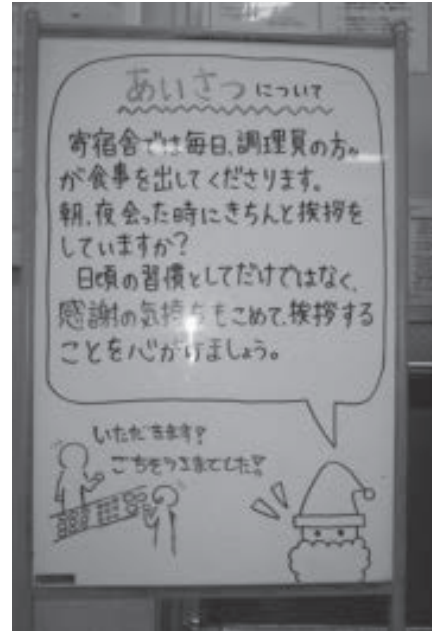 あいさつについて
寄宿舎では毎日、調理員の方々
が食事を出してくださります。
朝、夜会った時にきちんと挨拶を
していますか?
日頃の習慣としてだけではなく、
感謝の気持ちもこめて、挨拶する
ことを心がけましょう。
いただきます!
ごちそうさまでした!